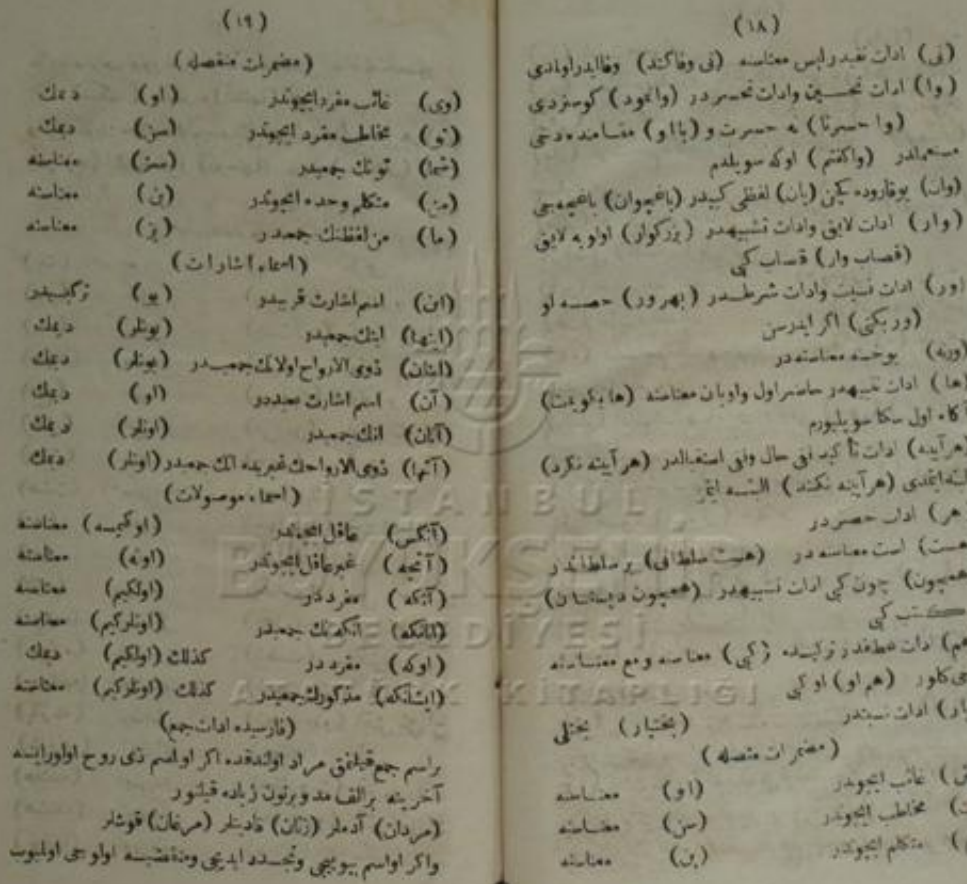 (١٨)
(نی) ادات نفیدر لیس معناسنه (نی وفاکند) وفا ایدر اولمادی
(وا) ادات تحسین وادات تحسر در (وانمود) کوستردی
(وا حسرتا) نه حسرت و (با او) مقامنده دخی
مستعملدر (واکفتم) اوکه سویلدم
(وان) یوقاروده یکن (بان) لفظی کبیدر (باغچوان) باغچه جی
(وار) ادات لایق وادات تشبیهدر (بزرکوار) اولویه لایق
(قصاب وار) قصاب کبی
(ور) ادات نسبت وادات شرطدر (بهره ور) حصه لو
(ور بکنی) اکر ایدرسن
(وره) یوخسه معناسنه در
(ها) ادات تنبیهدر حاضر اول واویان معناسنه (ها بکویمت)
آکاه اول سکا سویلیورم
(هرآینه) ادات تأکید نفی حال ونفی استقبالدر (هرآینه نکرد)
البته ایتمدی (هرآینه نکند) البته ایتمز
(هر) ادات حصر در
(هست) است معناسنه در (هست سلطانی) بر سلطاندر
(همچون) چون کبی ادات تشبیهدر (همچون دبستان)
مکتب کبی
(هم) ادات عطفدر ترکیده (کبی) معناسنه ومع معناسنه
دخی کلور (هم او) او کبی
(یار) ادات نسبتدر (بختیار) بختلی
(مضمرات متصله)
(ش) غائب ایچوندر (او) معناسنه
(ت) مخاطب ایچوندر (سن) معناسنه
(م) متکلم ایچوندر (بن) معناسنه
(١٩)
(مضمرات منفصله)
(وی) غائب مفرد ایچوندر (او) دیمك
(تو) مخاطب مفرد ایچوندر (سن) دیمك
(شما) تونك جمعیدر (سز) معناسنه
(من) متکلم وحده ایچوندر (بن) معناسنه
(ما) من لفظنك جمعیدر (بز) معناسنه
(اسماء اشارات)
(این) اسم اشارت قریبدر (بو) ترکیبدر
(اینها) اینك جمعیدر (بونلر) دیمك
(اینان) ذوی الارواح اولانك جمعیدر (بونلر) دیمك
(آن) اسم اشارت بعیددر (او) دیمك
(آنان) انك جمعیدر (اونلر) دیمك
(آنها) ذوی الارواحك غیریده انك جمعیدر (اونلر) دیمك
(اسماء موصولات)
(آنکس) عاقل ایچوندر (اوکیمسه) معناسنه
(آنچه) غیر عاقل ایچوندر (اونه) معناسنه
(آنکه) مفرددر (اولکیم) معناسنه
(آنانکه) آنکه نك جمعیدر (اونلرکیم) معناسنه
(اوکه) مفرددر کذلك (اولکیم) دیمك
(ایشانکه) مذکورك جمعیدر کذلك (اونلرکیم) معناسنه
(فارسیده ادات جمع)
براسم جمع قیلنمق مراد اولندقده اکر او اسم ذی روح اولورایسه
آخرینه برالف مد وبرنون زیاده قیلنور
(مردان) آدملر (زنان) قادینلر (مرغان) قوشلر
واکر اواسم بیویجی وتجدد ایدیجی ومنقضیه اولوجی اولمیوب